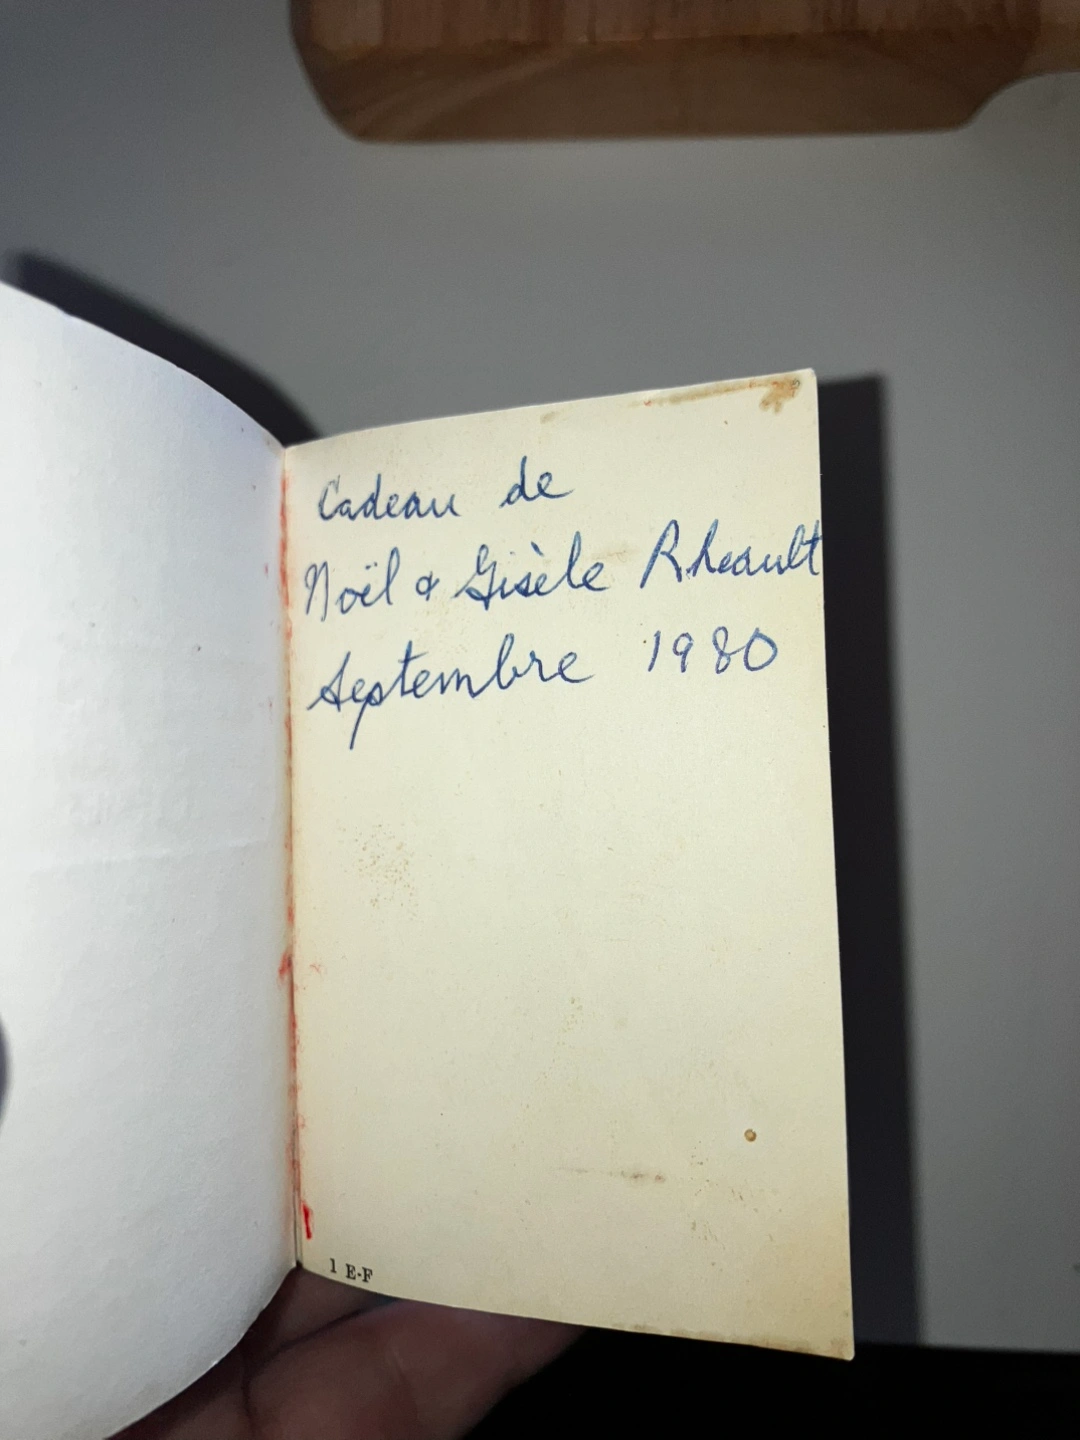 Cadeau de
Noël & Gisèle Rheault
Septembre 1980
1 E-F